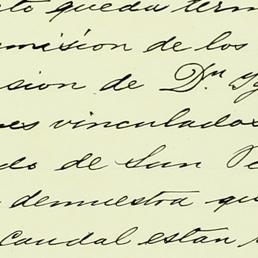 to queda term
misión de los
sion de Dn. Yg
nes vinculados
do de San Pe
demuestra qu
caudal estan